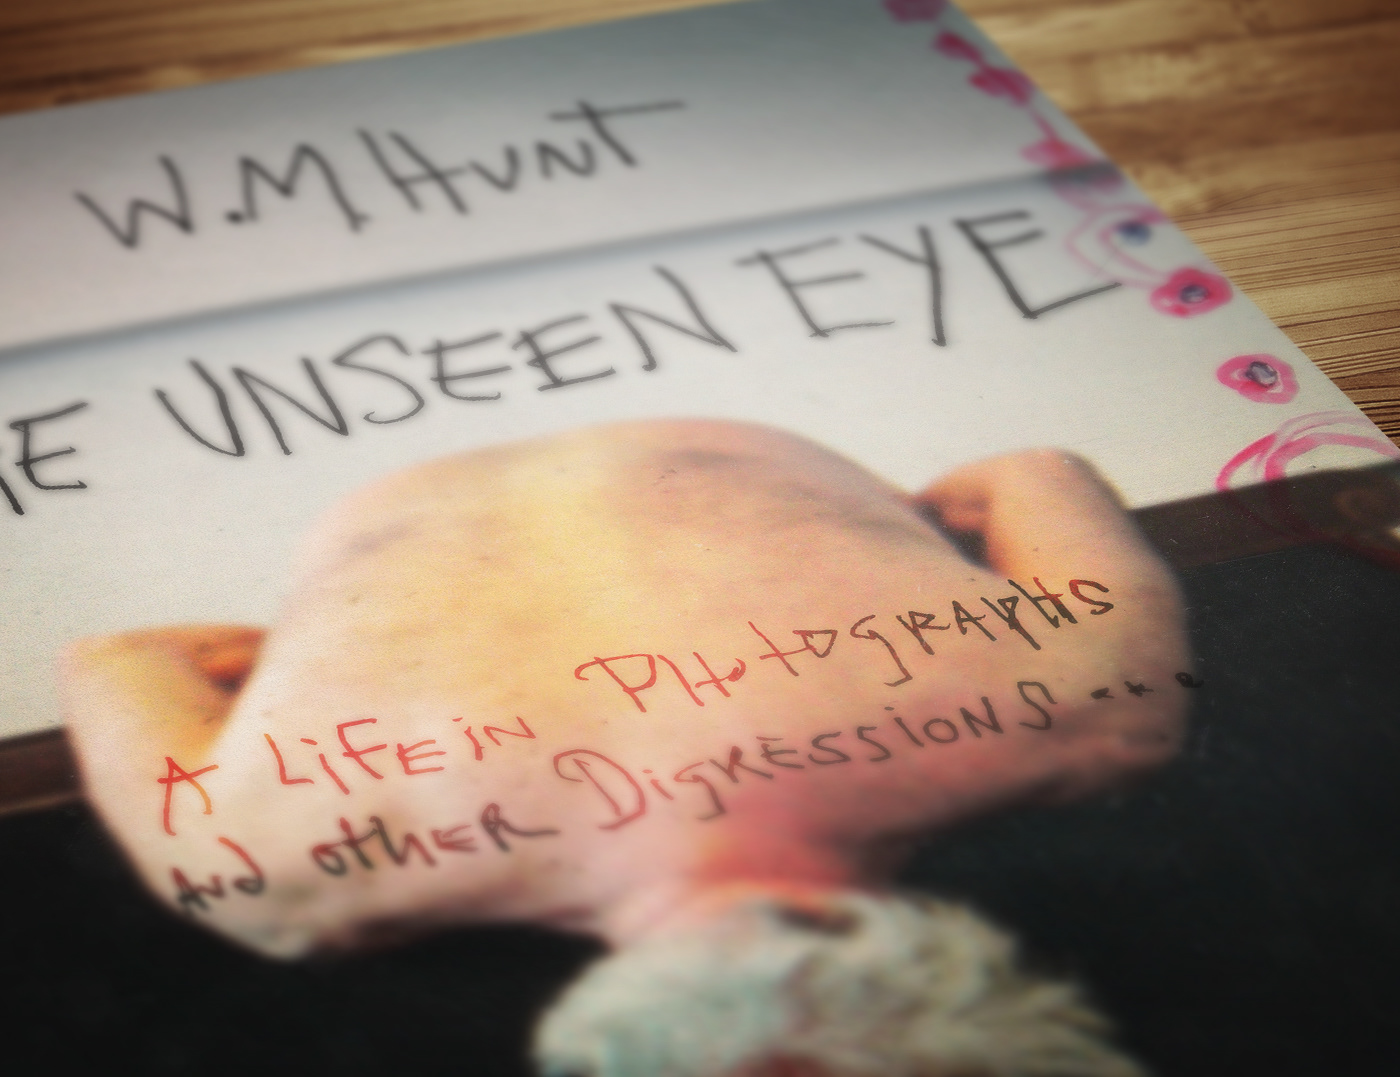 W.M HUNT
HE UNSEEN EYE
A LiFE iN PHotogRAPHS
And otHER DigRESSiONS ...